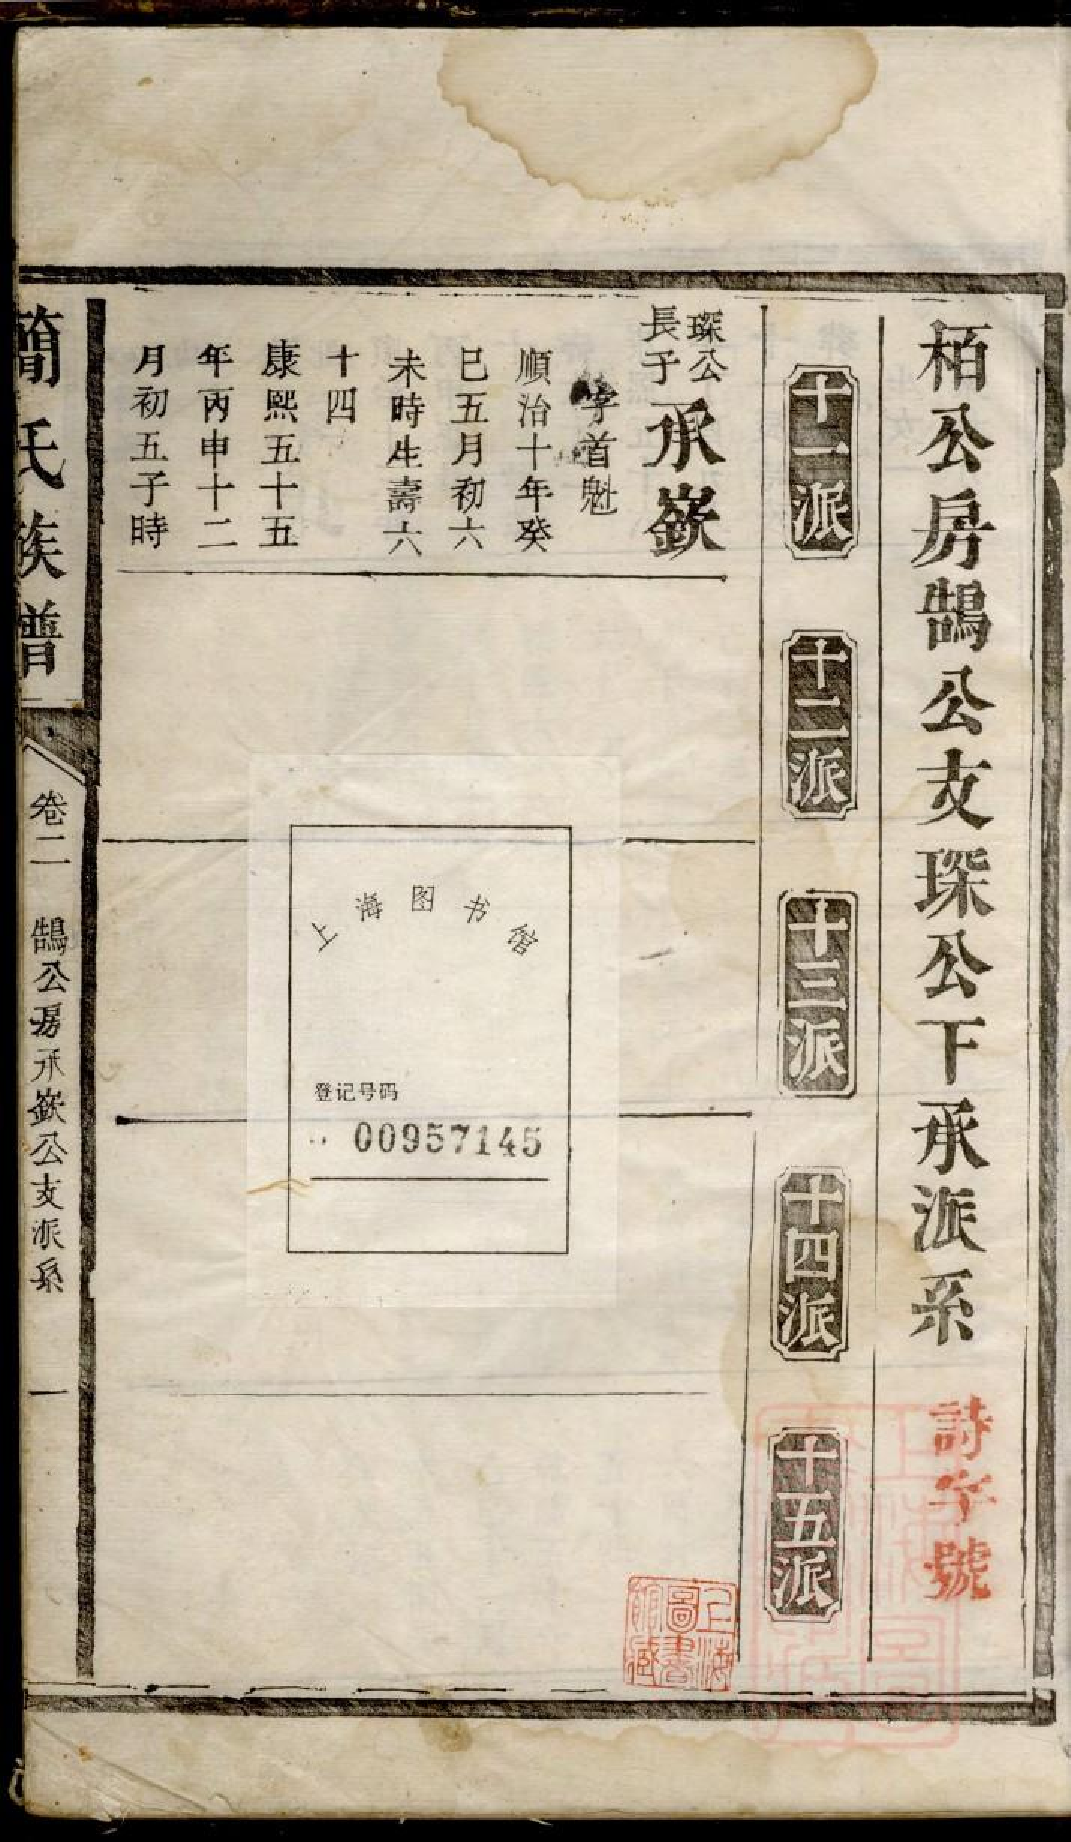 栢公房鵠公支琛公下承派系
詩字號
十一派
十二派
十三派
十四派
十五派
琛公
長子
承嶔
字首魁
順治十年癸
巳五月初六
未時生壽六
十四
康熙五十五
年丙申十二
月初五子時
簡氏族譜
卷二
鵠公房承嶔公支派系
一
上海图书馆
登记号码
00957145
上海
圖書
館藏